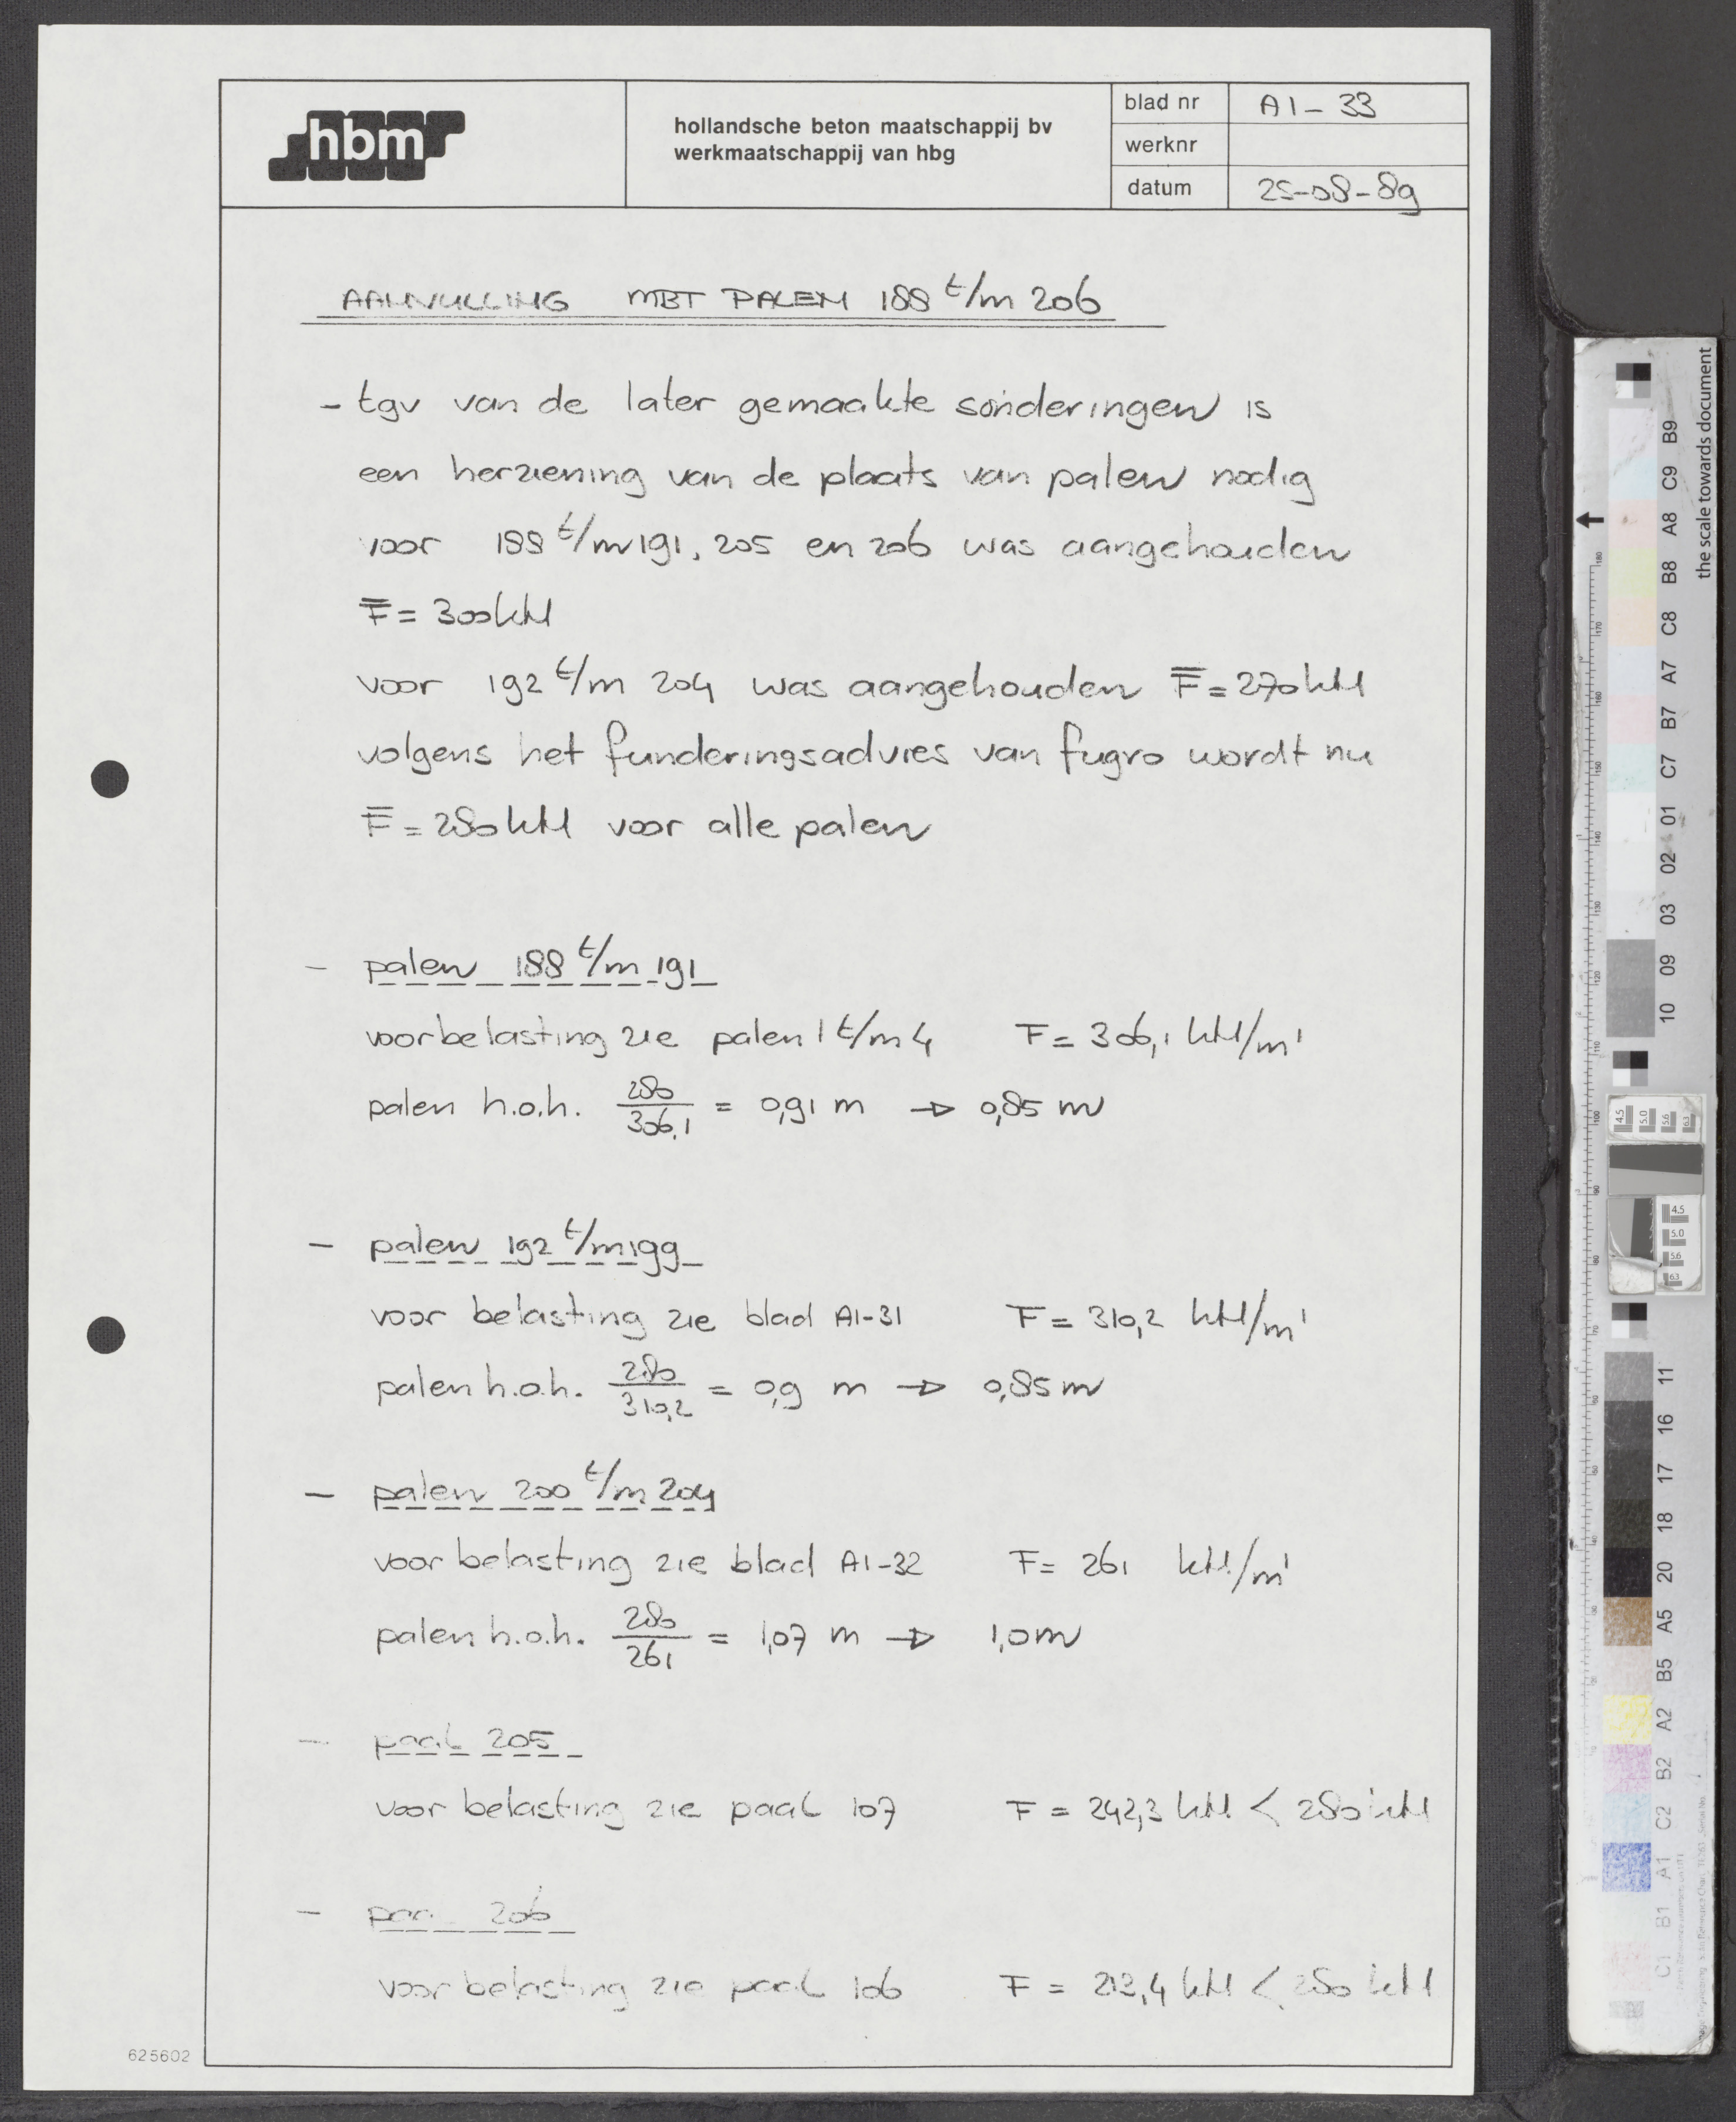 hbm
hollandsche beton maatschappij bv
werkmaatschappij van hbg
blad nr A1-33
werknr
datum 25-08-89
AANVULLING MBT PALEN 188 t/m 206
- tgv van de later gemaakte sonderingen is
een herziening van de plaats van palen nodig
voor 188 t/m 191, 205 en 206 was aangehouden
F̿ = 300 kN
voor 192 t/m 204 was aangehouden F̿ = 270 kN
volgens het funderingsadvies van fugro wordt nu
F̿ = 280 kN voor alle palen
- palen 188 t/m 191
voor belasting zie palen 1 t/m 4 F = 306,1 kN/m'
palen h.o.h. 280/306,1 = 0,91 m → 0,85 m
- palen 192 t/m 199
voor belasting zie blad A1-31 F = 310,2 kN/m'
palen h.o.h. 280/310,2 = 0,9 m → 0,85 m
- palen 200 t/m 204
voor belasting zie blad A1-32 F = 261 kN/m'
palen h.o.h. 280/261 = 1,07 m → 1,0 m
- paal 205
voor belasting zie paal 107 F = 242,3 kN < 280 kN
- paa 206
voor belasting zie paal 106 F = 213,4 kN < 280 kN
625602
the scale towards document
B9
C9
A8
B8
C8
A7
B7
C7
01
02
03
09
10
11
16
17
18
20
A5
B5
A2
B2
C2
A1
B1
C1